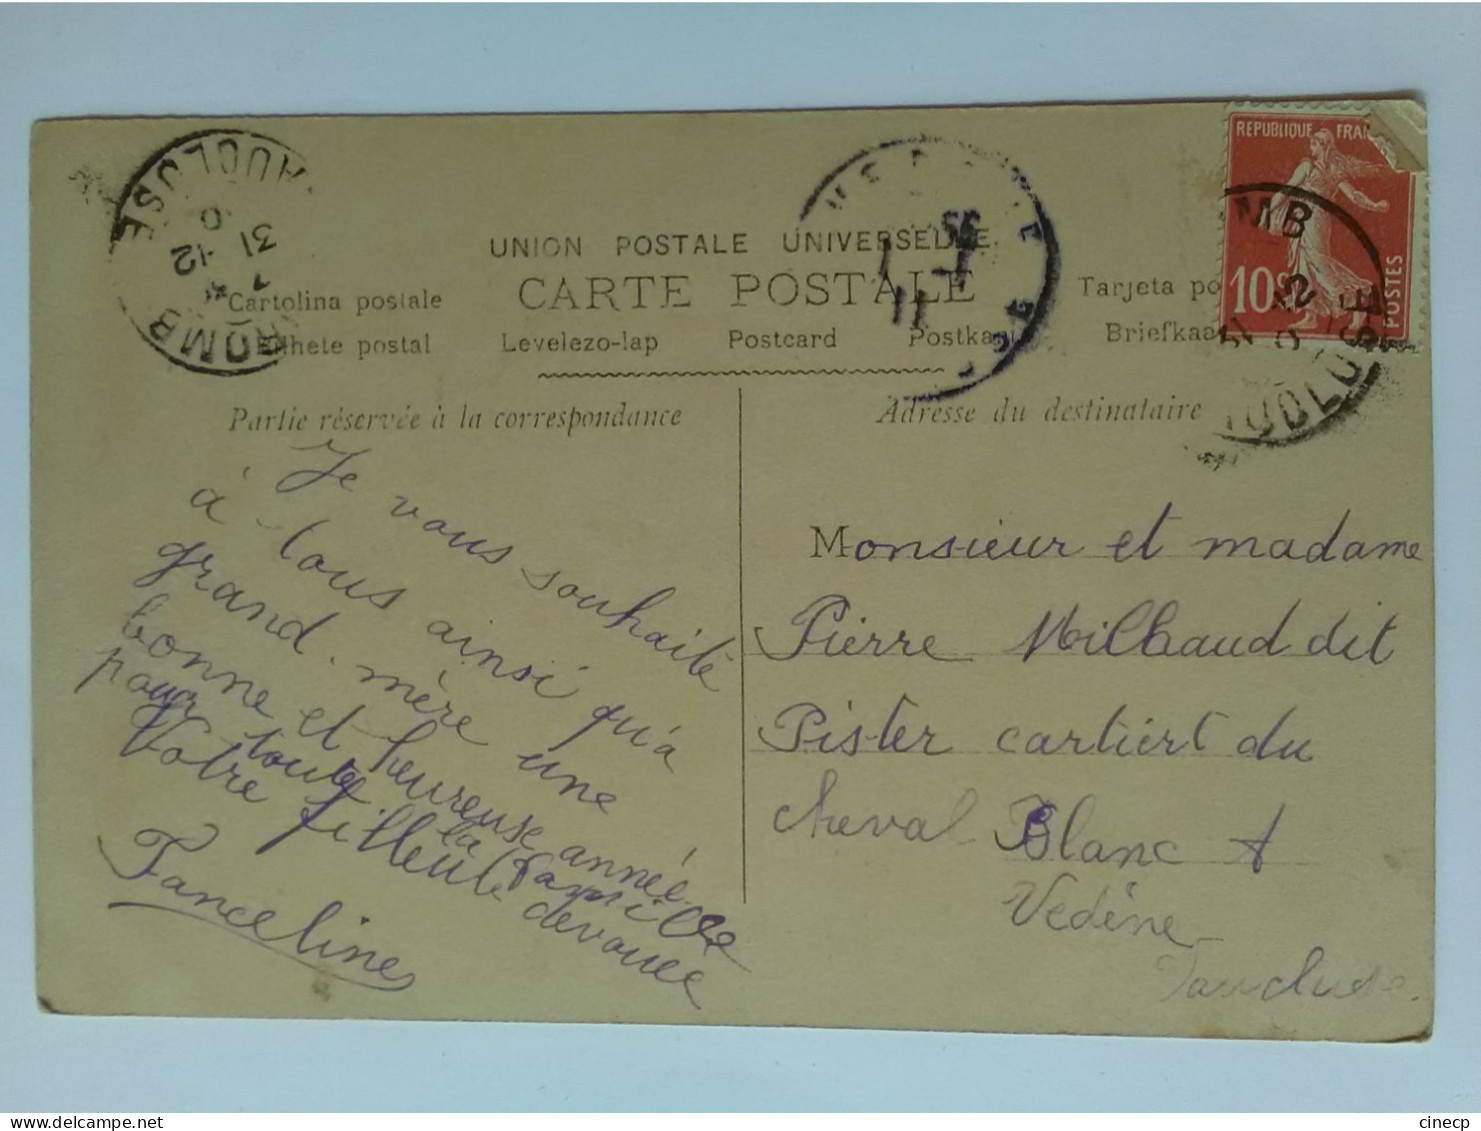 UNION POSTALE UNIVERSELLE.
CARTE POSTALE
Cartolina postale
Tarjeta po
Levelezo-lap Postcard Postkaa Briefkaa
hete postal
Partie réservée à la correspondance
Adresse du destinataire
REPUBLIQUE FRAN
10c
POSTES
VAUCLUSE
31 -12
ROMB
55
1 - 1
11
OMB
AUCLUSE
Je vous souhaite
à tous ainsi qu'à
grand-mère une
bonne et heureuse année
pour toute la famille
Votre filleule devouee
Fanceline
Monsieur et madame
Pierre Milhaud dit
Pister cartiert du
cheval Blanc A
Vedène
Vaucluse
cinecp